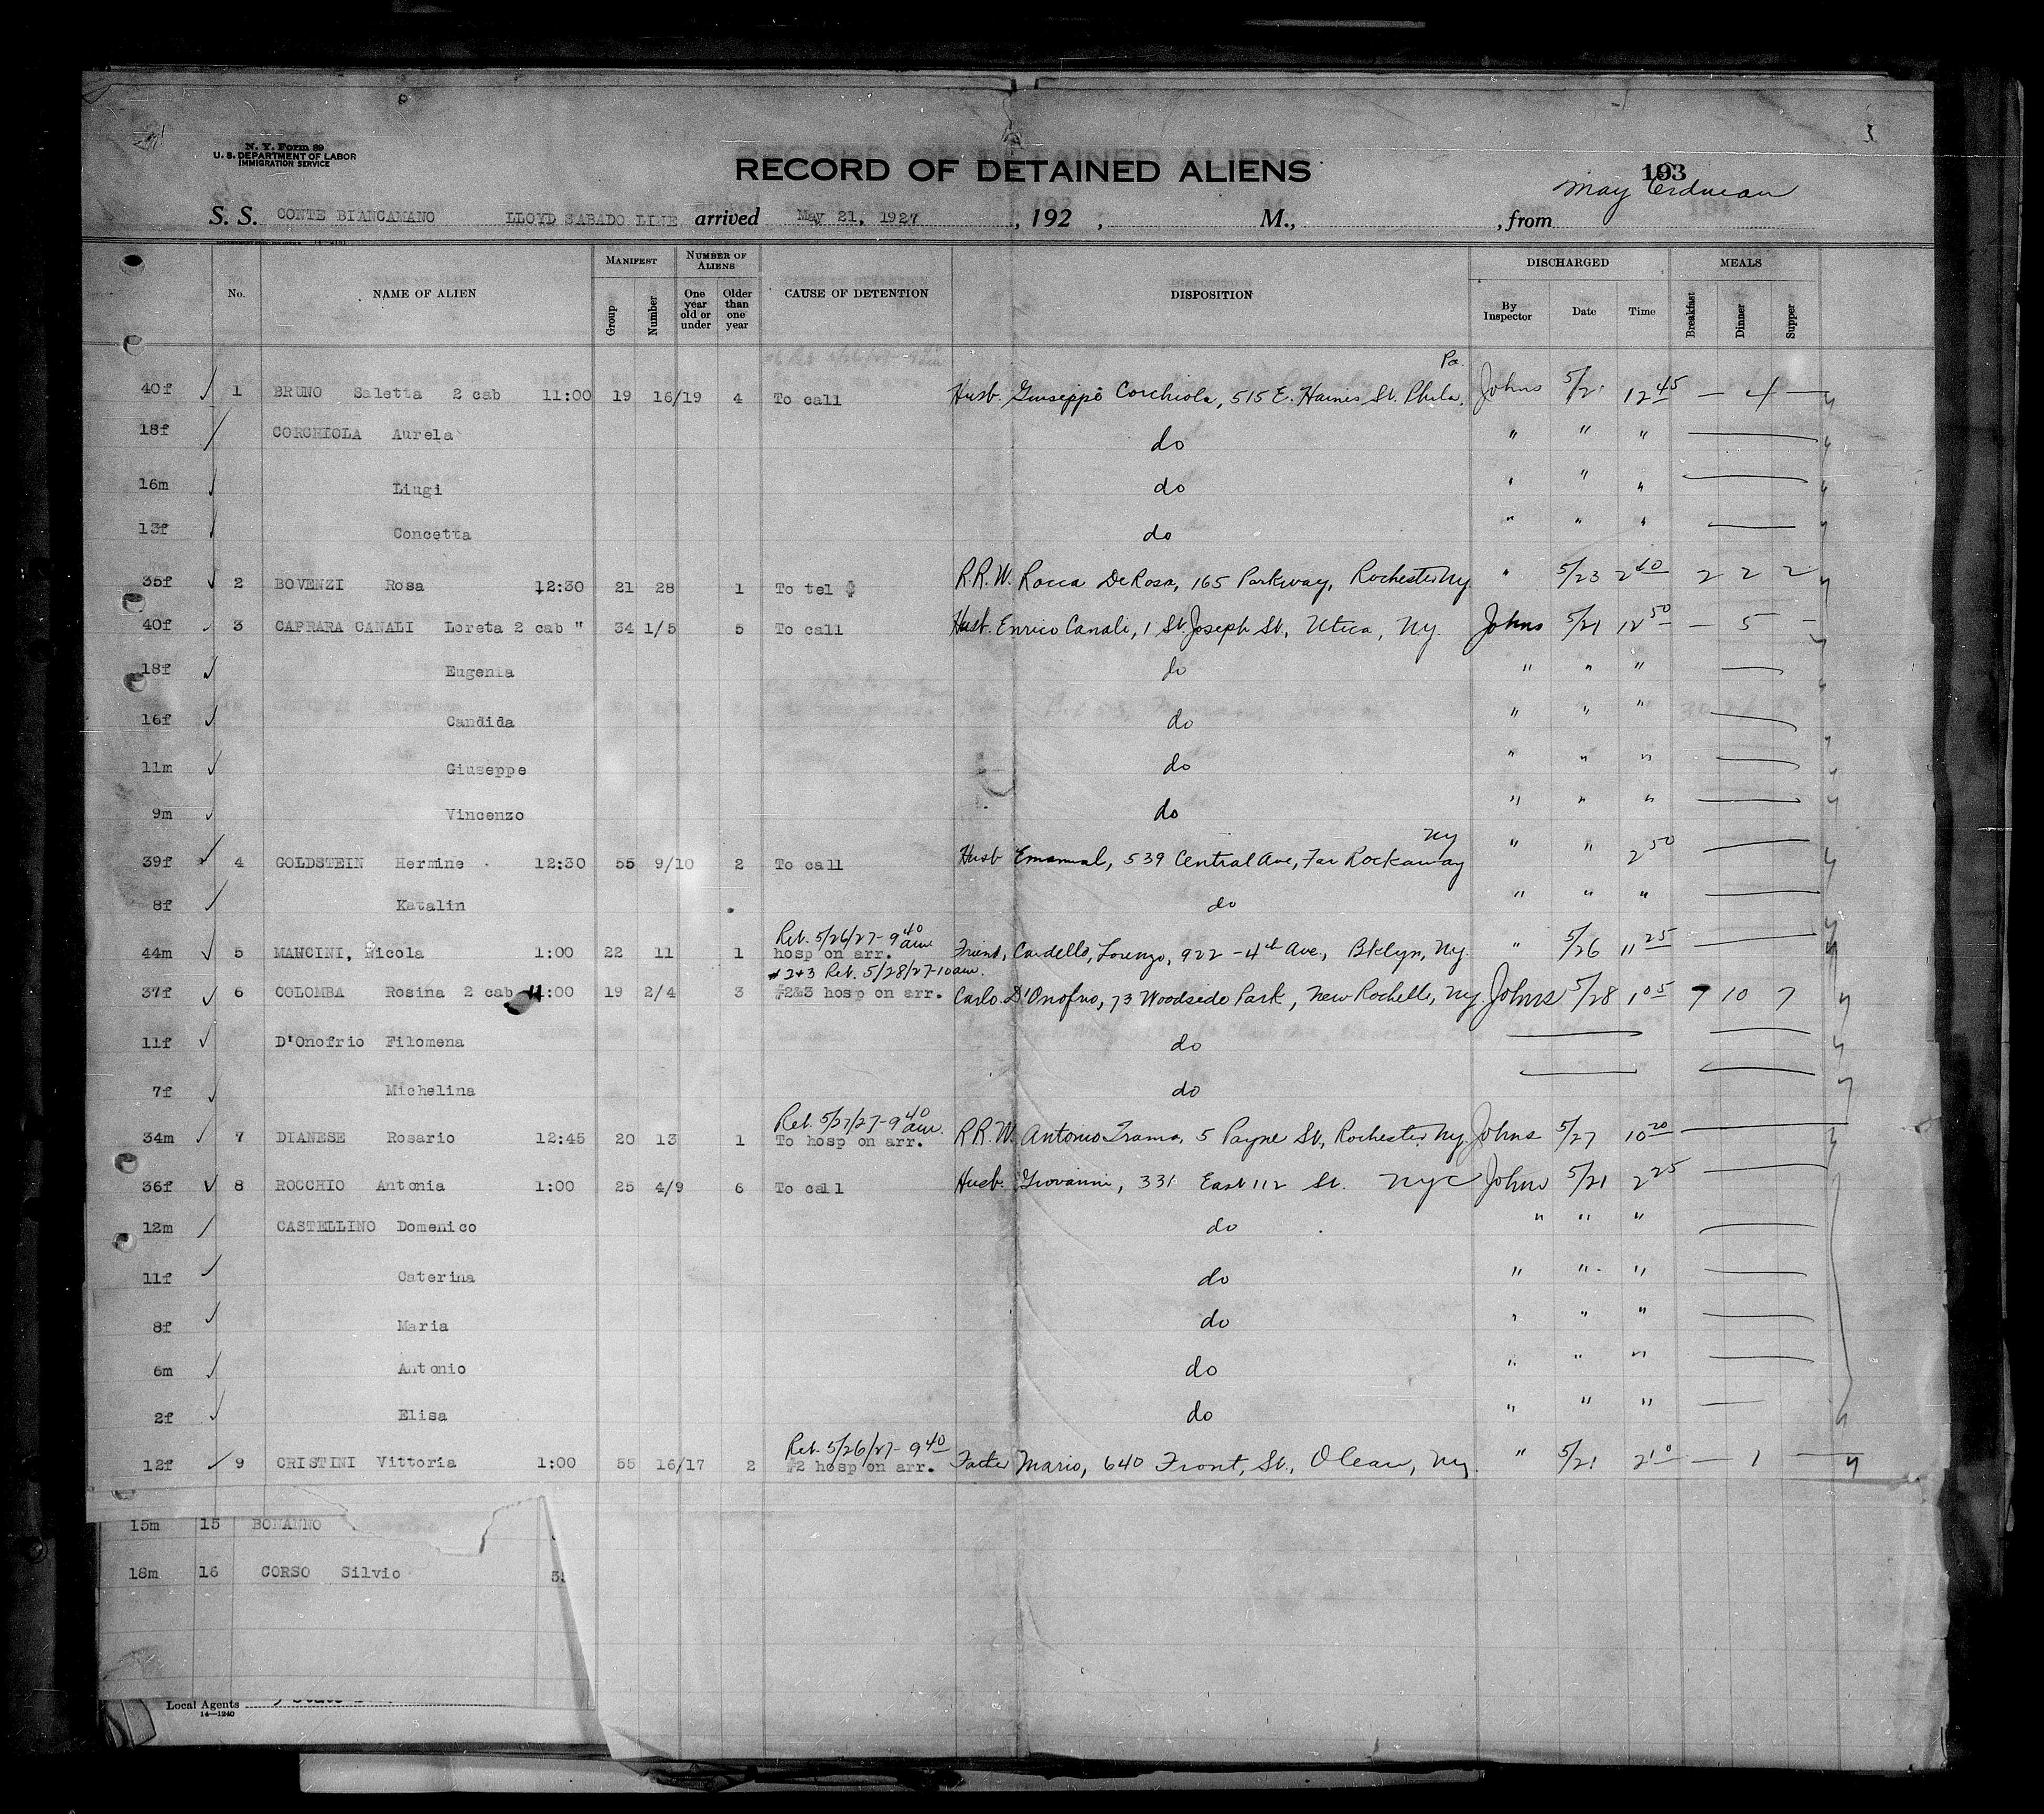 N. Y. Form 89
U. S. DEPARTMENT OF LABOR
IMMIGRATION SERVICE
RECORD OF DETAINED ALIENS
193
S. S. CONTE BIANCAMANO LLOYD SABADO LINE arrived May 21, 1927, 192 , M., , from May Erdman
No. NAME OF ALIEN MANIFEST Group Number NUMBER OF ALIENS One year old or under Older than one year CAUSE OF DETENTION DISPOSITION DISCHARGED By Inspector Date Time MEALS Breakfast Dinner Supper
Pa.
40f 1 BRUNO Saletta 2 cab 11:00 19 16/19 4 To call Husb. Giuseppe Corchiola, 515 E. Haines St. Phila. Johns 5/21 12 45 — 4 —
18f CORCHIOLA Aurela do " " "
16m Liugi do " " "
13f Concetta do " " "
35f 2 BOVENZI Rosa 12:30 21 28 1 To tel $ R.R.W. Rocca DeRosa, 165 Parkway, Rochester NY " 5/23 2 40 2 2 2
40f 3 CAPRARA CANALI Loreta 2 cab " 34 1/5 5 To call Husb. Enrico Canali, 1 St. Joseph St., Utica, NY. Johns 5/21 12 50 — 5 —
18f Eugenia do " " "
16f Candida do " " "
11m Giuseppe do " " "
9m Vincenzo do " " "
NY
39f 4 GOLDSTEIN Hermine 12:30 55 9/10 2 To call Husb Emanual, 539 Central Ave, Far Rockaway " " 2 50
8f Katalin do " " "
Ret. 5/26/27 - 9 40 am.
44m 5 MANCINI, Nicola 1:00 22 11 1 hosp on arr. Friend, Cardello, Lorenzo, 922 - 4th Ave., Bklyn, NY. " 5/26 11 25
# 2+3 Ret. 5/28/27-10 am.
37f 6 COLOMBA Rosina 2 cab 11:00 19 2/4 3 #2&3 hosp on arr. Carlo D'Onofrio, 73 Woodside Park, New Rochelle, NY. Johns 5/28 1 05 7 10 7
11f D'Onofrio Filomena do
7f Michelina do
Ret. 5/27/27 - 9 40 am.
34m 7 DIANESE Rosario 12:45 20 13 1 To hosp on arr. R.R.W. Antonio Trama, 5 Payne St, Rochester NY. Johns 5/27 10 20
36f 8 ROCCHIO Antonia 1:00 25 4/9 6 To call Husb. Giovanni, 331 East 112 St. NYC Johns 5/21 2 25
12m CASTELLINO Domenico do " " "
11f Caterina do " " "
8f Maria do " " "
6m Antonio do " " "
2f Elisa do " " "
Ret. 5/26/27 - 9 40
12f 9 CRISTINI Vittoria 1:00 55 16/17 2 #2 hosp on arr. Father Mario, 640 Front, St., Olean, NY. " 5/21 2 10 — 1 —
15m 15 BONANNO
18m 16 CORSO Silvio
Local Agents
14—1240